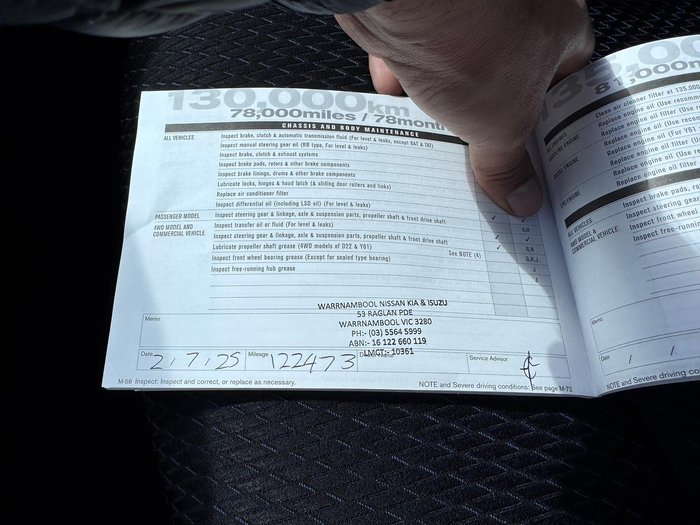 130,000km
78,000miles / 78mont
CHASSIS AND BODY MAINTENANCE
ALL VEHICLES
Inspect brake, clutch & automatic transmission fluid (For level & leaks, except BAT & 7AT)
Inspect manual steering gear oil (RB type, For level & leaks)
Inspect brake, clutch & exhaust systems
Inspect brake pads, rotors & other brake components
Inspect brake linings, drums & other brake components
Lubricate locks, hinges & hood latch (& sliding door rollers and links)
Replace air conditioner filter
Inspect differential oil (including LSD oil) (For level & leaks)
PASSENGER MODEL Inspect steering gear & linkage, axle & suspension parts, propeller shaft & front drive shaft ✓
4WD MODEL AND COMMERCIAL VEHICLE
Inspect transfer oil or fluid (For level & leaks) G,H
Inspect steering gear & linkage, axle & suspension parts, propeller shaft & front drive shaft ✓
Lubricate propeller shaft grease (4WD models of D22 & Y61) ✓ G,H
Inspect front wheel bearing grease (Except for sealed type bearing) See NOTE (4) G,H,J
Inspect free-running hub grease
WARRNAMBOOL NISSAN KIA & ISUZU
53 RAGLAN PDE
WARRNAMBOOL VIC 3280
PH:- (03) 5564 5999
ABN:- 16 122 660 119
LMCT:- 10361
Memo
Date 2/7/25 Mileage 122473 Service Advisor
M-58 Inspect: Inspect and correct, or replace as necessary. NOTE and Severe driving conditions: See page M-72
35,00
81,000m
Clean air cleaner filter at 135,000
Replace engine oil (Use recomm
Replace engine oil (Use
Replace engine oil (For
Replace engine oil (Use r
Replace engine oil (Use re
Replace engine oil (Use
ALL VEHICLES
4WD MODEL & COMMERCIAL VEHICLE
Inspect brake pads,
Inspect steering gear
Inspect front wheel
Inspect free-runnin
Memo
Date / /
NOTE and Severe driving co